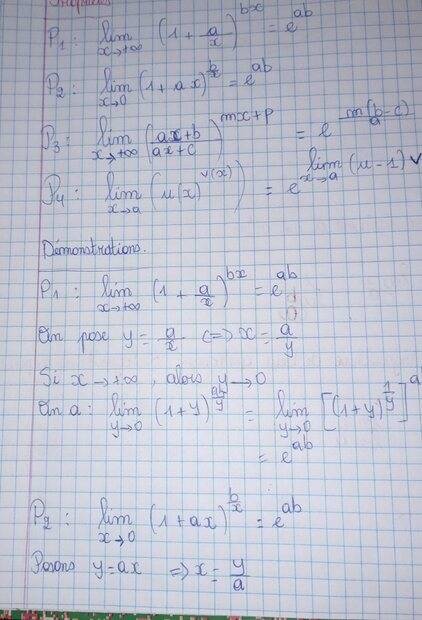 Propriétés
P1 : lim x→+∞ (1 + a/x)^bx = e^ab
P2 : lim x→0 (1 + ax)^b/x = e^ab
P3 : lim x→+∞ ((ax+b)/(ax+c))^mx+p = e^m(b-c)/a
P4 : lim x→a (u(x)^v(x)) = e^lim x→a (u-1)v
Démonstrations.
P1 : lim x→+∞ (1 + a/x)^bx = e^ab
On pose y = a/x <=> x = a/y
Si x → +∞, alors y → 0
On a : lim y→0 (1+y)^ab/y = lim y→0 [(1+y)^1/y]^a
= e^ab
P2 : lim x→0 (1+ax)^b/x = e^ab
Posons y = ax => x = y/a